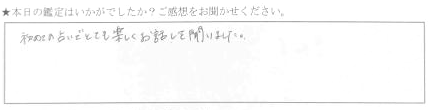 ★本日の鑑定はいかがでしたか？ご感想をお聞かせください。
初めての占いでとても楽しくお話しを聞けました。